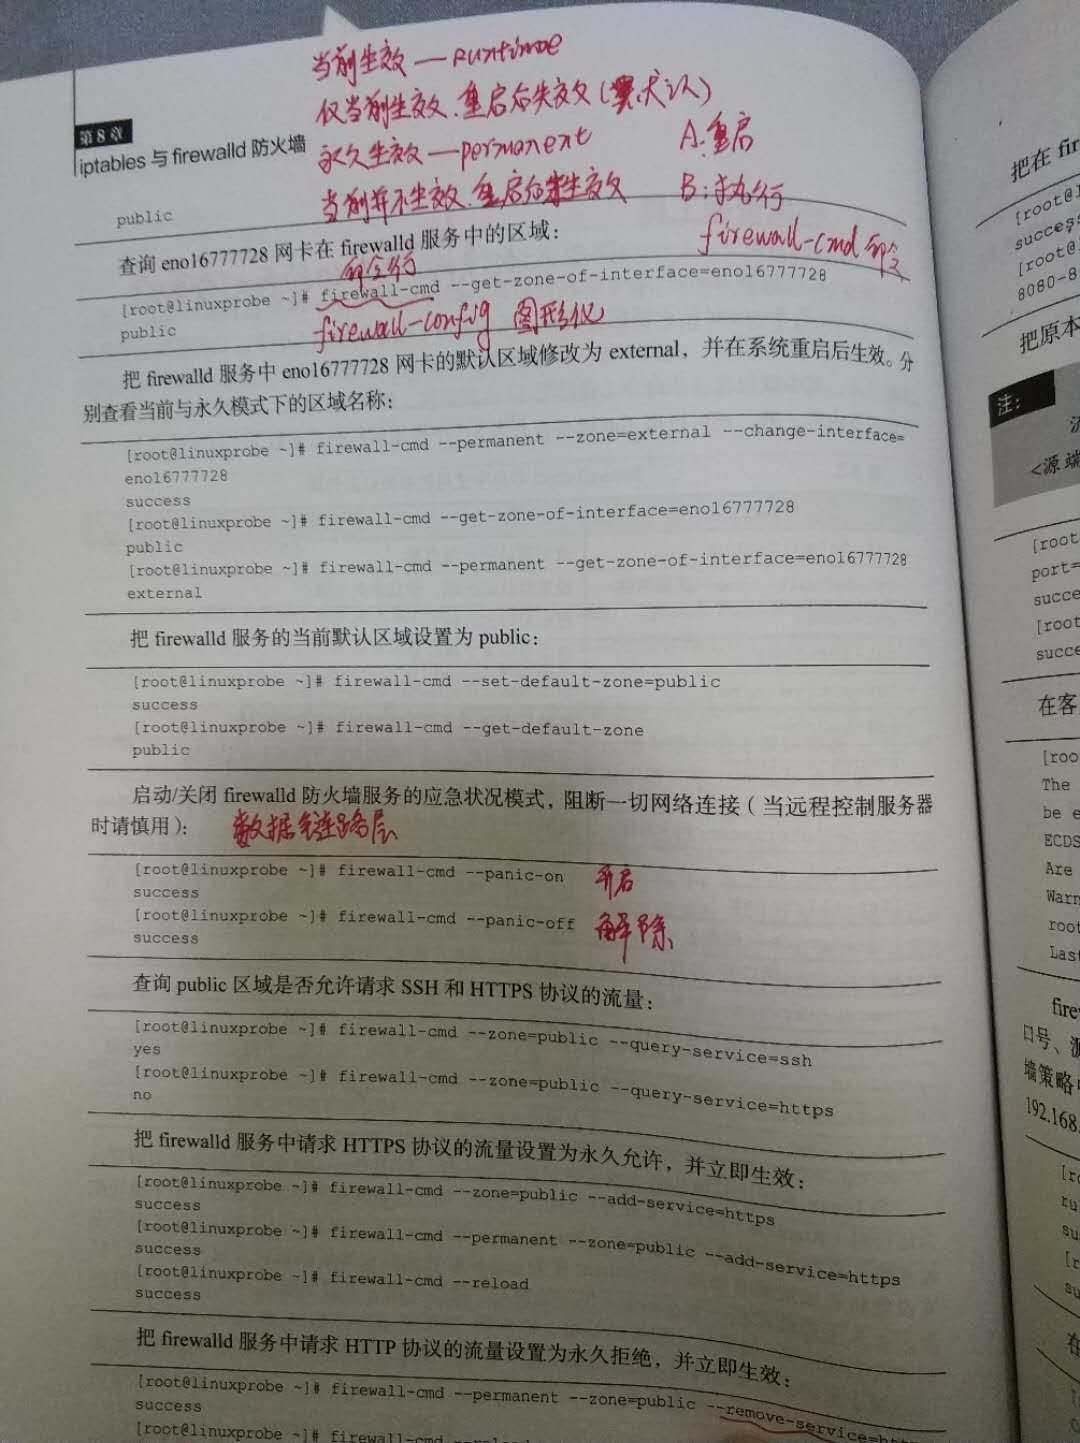 当前生效—runtime
仅当前生效.重启后失效(默认)
第8章
iptables 与 firewalld 防火墙
永久生效—permanent
A:重启
当前并不生效.重启后生效
B:执行
firewall-cmd 命令
public
查询 eno16777728 网卡在 firewalld 服务中的区域:
命令行
[root@linuxprobe ~]# firewall-cmd --get-zone-of-interface=eno16777728
public
firewall-config 图形化
把 firewalld 服务中 eno16777728 网卡的默认区域修改为 external，并在系统重启后生效。分
别查看当前与永久模式下的区域名称:
[root@linuxprobe ~]# firewall-cmd --permanent --zone=external --change-interface=
eno16777728
success
[root@linuxprobe ~]# firewall-cmd --get-zone-of-interface=eno16777728
public
[root@linuxprobe ~]# firewall-cmd --permanent --get-zone-of-interface=eno16777728
external
把 firewalld 服务的当前默认区域设置为 public:
[root@linuxprobe ~]# firewall-cmd --set-default-zone=public
success
[root@linuxprobe ~]# firewall-cmd --get-default-zone
public
启动/关闭 firewalld 防火墙服务的应急状况模式，阻断一切网络连接（当远程控制服务器
时请慎用）:
数据链路层
[root@linuxprobe ~]# firewall-cmd --panic-on 开启
success
[root@linuxprobe ~]# firewall-cmd --panic-off 解除
success
查询 public 区域是否允许请求 SSH 和 HTTPS 协议的流量:
[root@linuxprobe ~]# firewall-cmd --zone=public --query-service=ssh
yes
[root@linuxprobe ~]# firewall-cmd --zone=public --query-service=https
no
把 firewalld 服务中请求 HTTPS 协议的流量设置为永久允许，并立即生效:
[root@linuxprobe ~]# firewall-cmd --zone=public --add-service=https
success
[root@linuxprobe ~]# firewall-cmd --permanent --zone=public --add-service=https
success
[root@linuxprobe ~]# firewall-cmd --reload
success
把 firewalld 服务中请求 HTTP 协议的流量设置为永久拒绝，并立即生效:
[root@linuxprobe ~]# firewall-cmd --permanent --zone=public --remove-service=
success
[root@linuxprobe ~]# firewall-cmd
把在
success
[root@
8080-8
把原本
注:
<源端
[root
port=
succe
[root
succe
在客
[roo
The
be e
ECDS
Are
Warn
root
Las
fire
口号、
墙策略
192.168